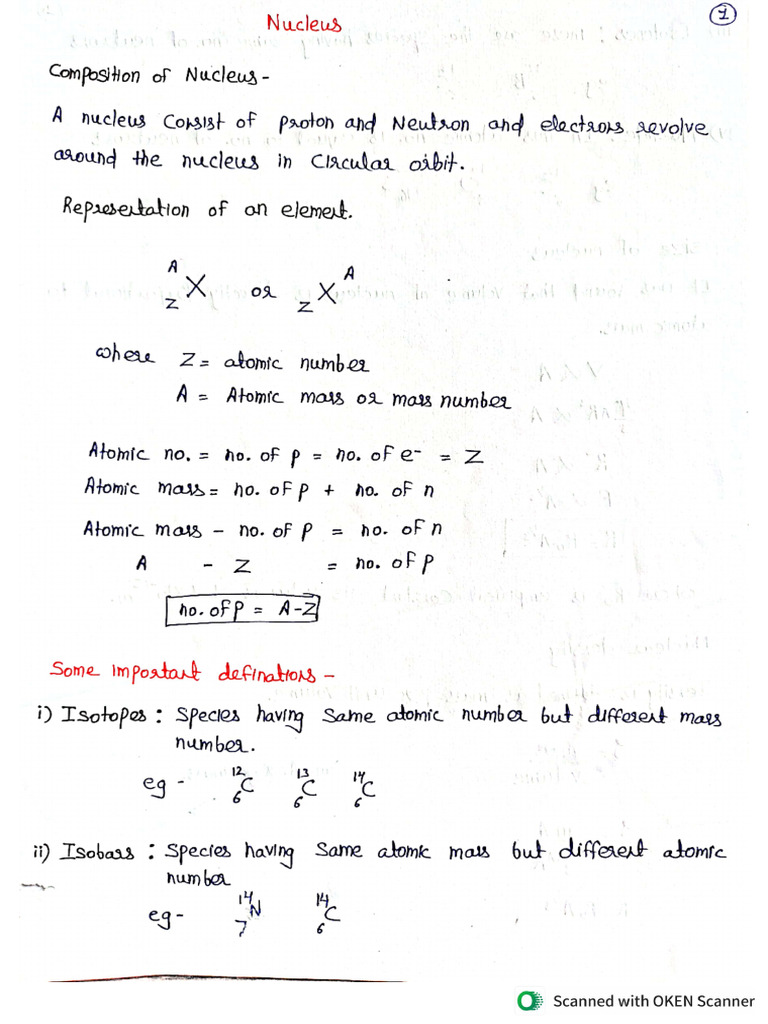 Nucleus
1
Composition of Nucleus -
A nucleus Consist of proton and Neutron and electrons revolve
around the nucleus in Circular orbit.
Representation of an element.
A Z X or Z X A
where Z = atomic number
A = Atomic mass or mass number
Atomic no. = no. of p = no. of e⁻ = Z
Atomic mass = no. of p + no. of n
Atomic mass - no. of p = no. of n
A - Z = no. of p
no. of p = A-Z
Some important definations -
i) Isotopes : Species having same atomic number but different mass
number.
eg - ¹²₆C ¹³₆C ¹⁴₆C
ii) Isobars : Species having same atomic mass but different atomic
number
eg - ¹⁴₇N ¹⁴₆C
Scanned with OKEN Scanner